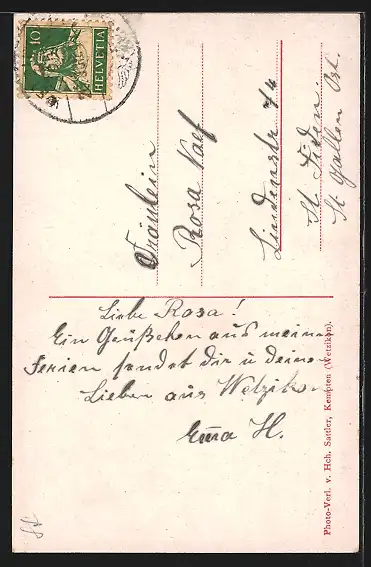 10
HELVETIA
Fräulein
Rosa Naef
Lindenstr
St Fiden
St Gallen Ost.
Liebe Rosa!
Ein Grüßchen aus meinen
Ferien sendet dir u deinen
Lieben aus Wetzikon
Emma H.
Photo-Verl. v. Hch. Sattler, Kempten (Wetzikon).